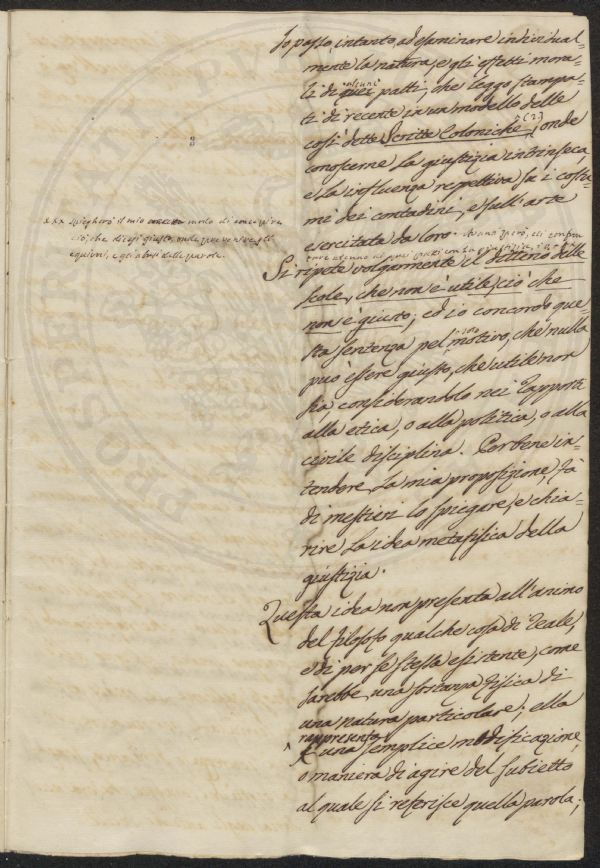 Io passo, intanto, ad esaminare individual-
mente la natura, e gli effetti mora-
alcuni
li di quei patti, che leggo stampa-
ti di recente in un modello delle
così dette Scritte Coloniche (2), onde
conoscerne la giustizia intrinseca,
e la influenza respettiva su i costu-
mi dei contadini, e sull'arte
esercitata da loro.
Si ripete volgarmente il detterio delle
scole, che non è utile, ciò che
non è giusto; ed io concordo que-
sta sentenza pel motivo, che nulla
può essere giusto, che utile non
sia, considerandolo nei rapporti
alla etica, o alla politica, o alla
civile disciplina. Per bene in-
tendere la mia proposizione, fà
di mestieri lo spiegare, e chia-
rire la idea metafisica della
giustizia.
Questa idea non presenta all'animo
del filosofo qualche cosa di reale,
e di per se stessa esistente, come
sarebbe una sostanza fisica di
una natura particolare; ella
rappresenta
una semplice modificazione,
o maniera di agire del subietto
al quale si referisce quella parola;
xxx Spiegherò il mio modo di concepire
ciò, che dicesi giusto, onde prevenire gli
equivoci, e gli abusi delle parole.